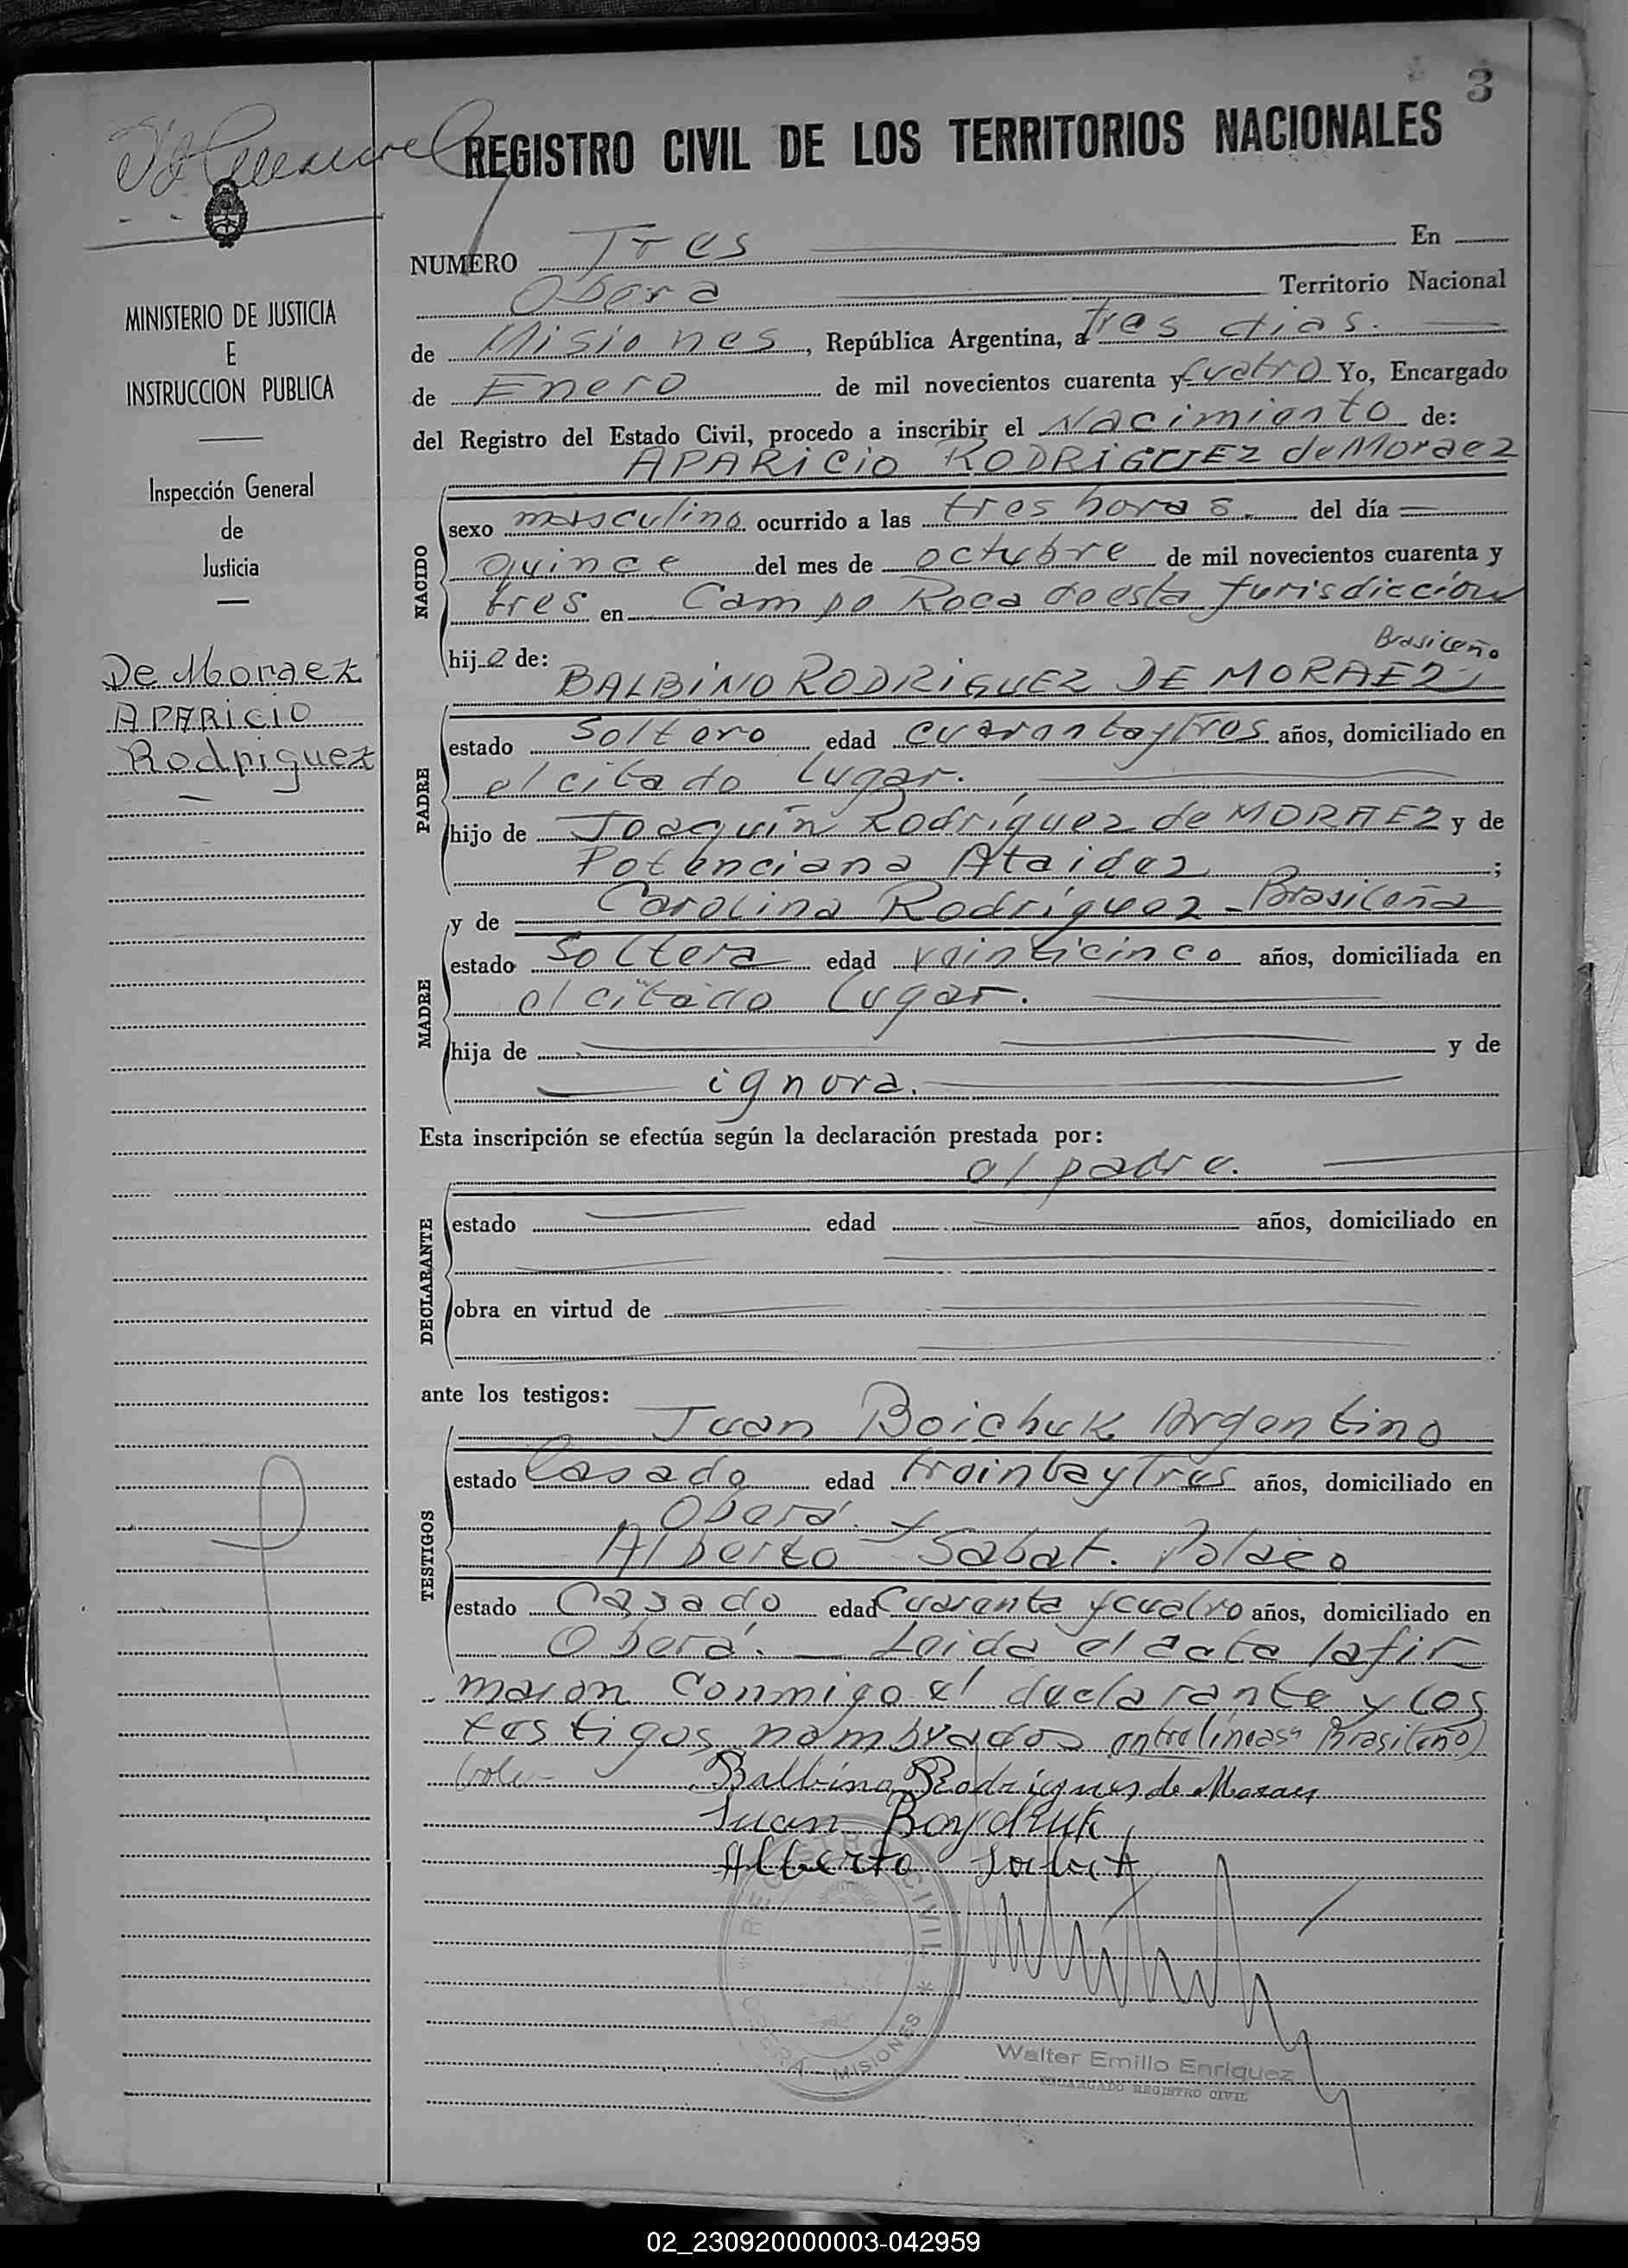 3
REGISTRO CIVIL DE LOS TERRITORIOS NACIONALES
MINISTERIO DE JUSTICIA
E
INSTRUCCION PUBLICA
Inspección General
de
Justicia
De Moraez
APARICIO
Rodriguez
NUMERO Tres En
Obera Territorio Nacional
de Misiones, República Argentina, a tres dias.
de Enero de mil novecientos cuarenta y cuatro Yo, Encargado
del Registro del Estado Civil, procedo a inscribir el Nacimiento de:
APARICIO RODRIGUEZ de Moraez
NACIDO
sexo masculino ocurrido a las tres horas. del día
quince del mes de octubre de mil novecientos cuarenta y
tres en Campo Roca de esta Jurisdicción
Brasileño
hijo de:
BALBINO RODRIGUEZ DE MORAEZ
PADRE
estado Soltero edad cuarentaytres años, domiciliado en
el citado lugar.
hijo de Joaquín Rodríguez de MORAEZ y de
Potenciana Ataidez ;
y de Carolina Rodríguez - Brasileña
MADRE
estado Soltera edad veinticinco años, domiciliada en
el citado lugar.
hija de y de
ignora.
Esta inscripción se efectúa según la declaración prestada por:
el padre.
DECLARANTE
estado edad años, domiciliado en
obra en virtud de
ante los testigos:
Juan Boichuk Argentino
TESTIGOS
estado Casado edad treintaytres años, domiciliado en
Oberá. y
Alberto Sabat. Polaco
estado Casado edad Cuarenta y cuatro años, domiciliado en
Oberá. Leida el acta la fir
maron conmigo el declarante y los
testigos nombrados entrelíneas "Brasileño)
Vale-
Balbino Rodrigues de Moraes
Juan Boydchuk
Alberto Sabat
REGISTRO CIVIL * OBERA - MISIONES *
Walter Emilio Enriquez
ENCARGADO REGISTRO CIVIL
02_230920000003-042959